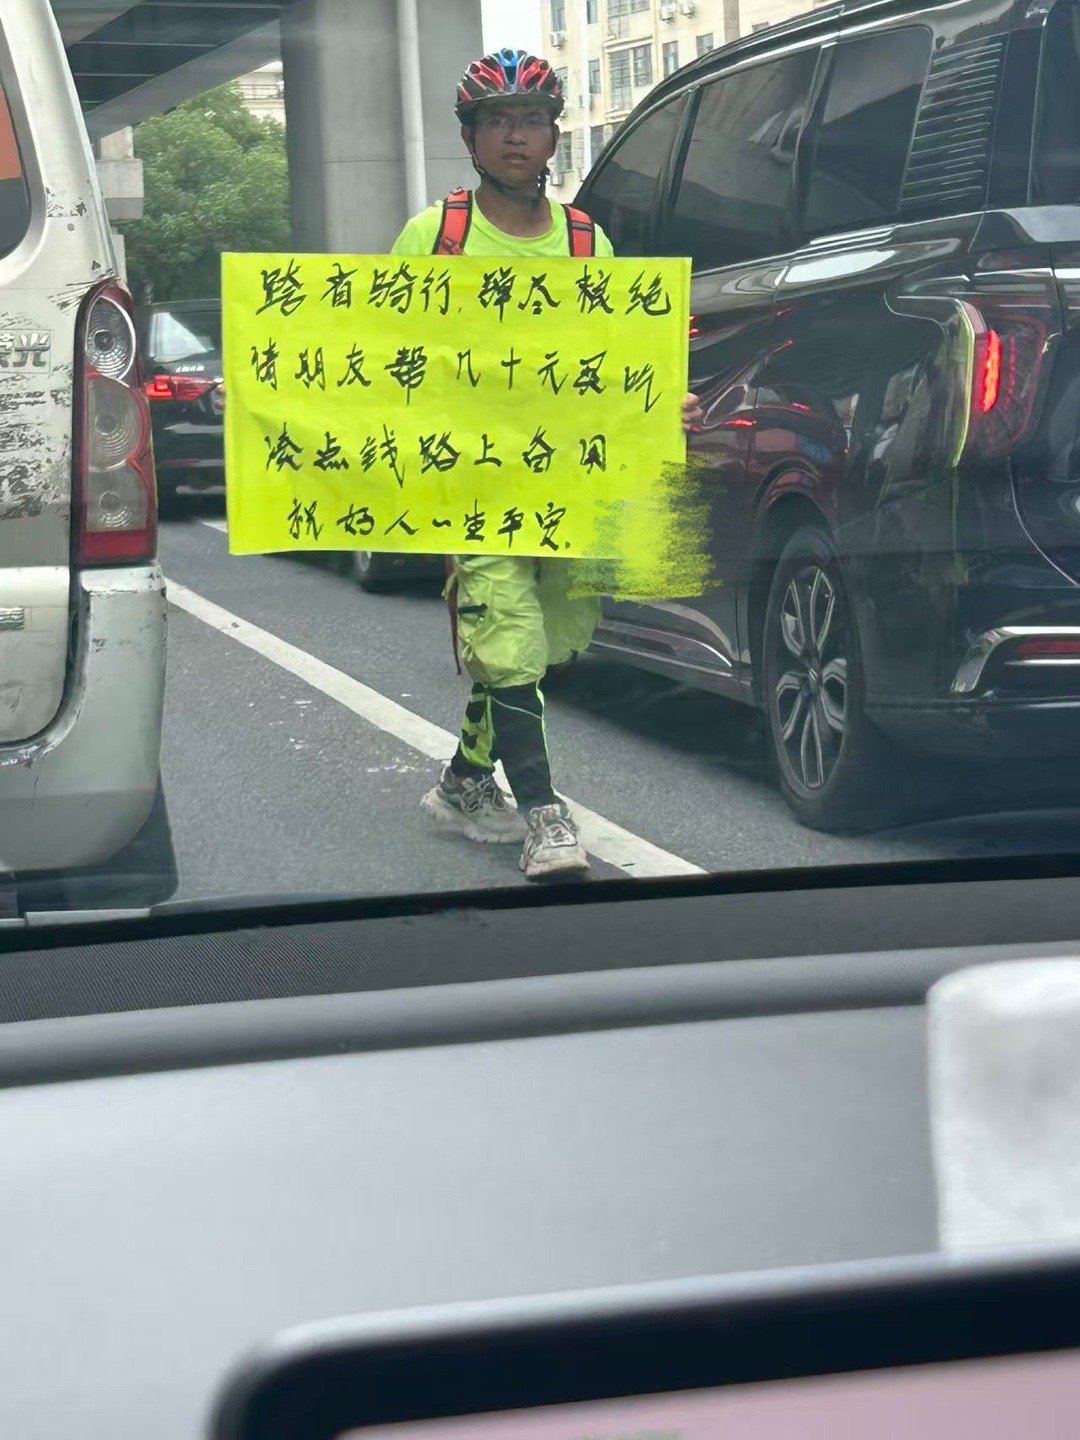 跨省骑行,弹尽粮绝
请朋友帮几十元买吃
凑点钱路上备用.
祝好人一生平安.
荣光